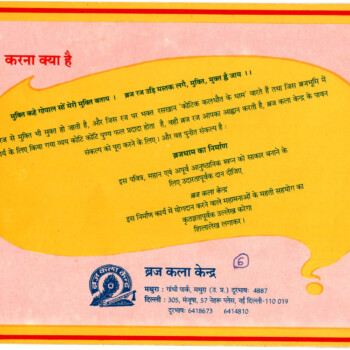 करना क्या है
मुक्ति कहे गोपाल सों मेरी मुक्ति बताय । ब्रज रज उड़ि मस्तक लगै, मुक्ति, मुक्त ह्वै जाय ।।
रज से मुक्ति भी मुक्त हो जाती है, और जिस रज पर भक्त रसखान 'कोटिक कलधौत के धाम' वारते हैं तथा जिस ब्रजभूमि में
र्य के लिए किया गया व्यय कोटि कोटि पुण्य फल प्रदाता होता है, वही ब्रज रज आपका आह्वान करती है, ब्रज कला केन्द्र के पावन
संकल्प को पूरा करने के लिए। और वह पुनीत संकल्प है :
ब्रजधाम का निर्माण
इस पवित्र, महान एवं अपूर्व आनुष्ठानिक स्वप्न को साकार बनाने के
लिए उदारतापूर्वक दान दीजिए
ब्रज कला केन्द्र
इस निर्माण कार्य में योगदान करने वाले महामनाओं के महती सहयोग का
कृतज्ञतापूर्वक उल्लेख करेगा
शिलालेख लगाकर।
ब्रज कला केन्द्र
ब्रज कला केन्द्र
मथुरा : गांधी पार्क, मथुरा (उ. प्र.) दूरभाष: 4887
दिल्ली : 305, मंजूषा, 57 नेहरू प्लेस, नई दिल्ली-110 019
दूरभाष: 6418673 6414810